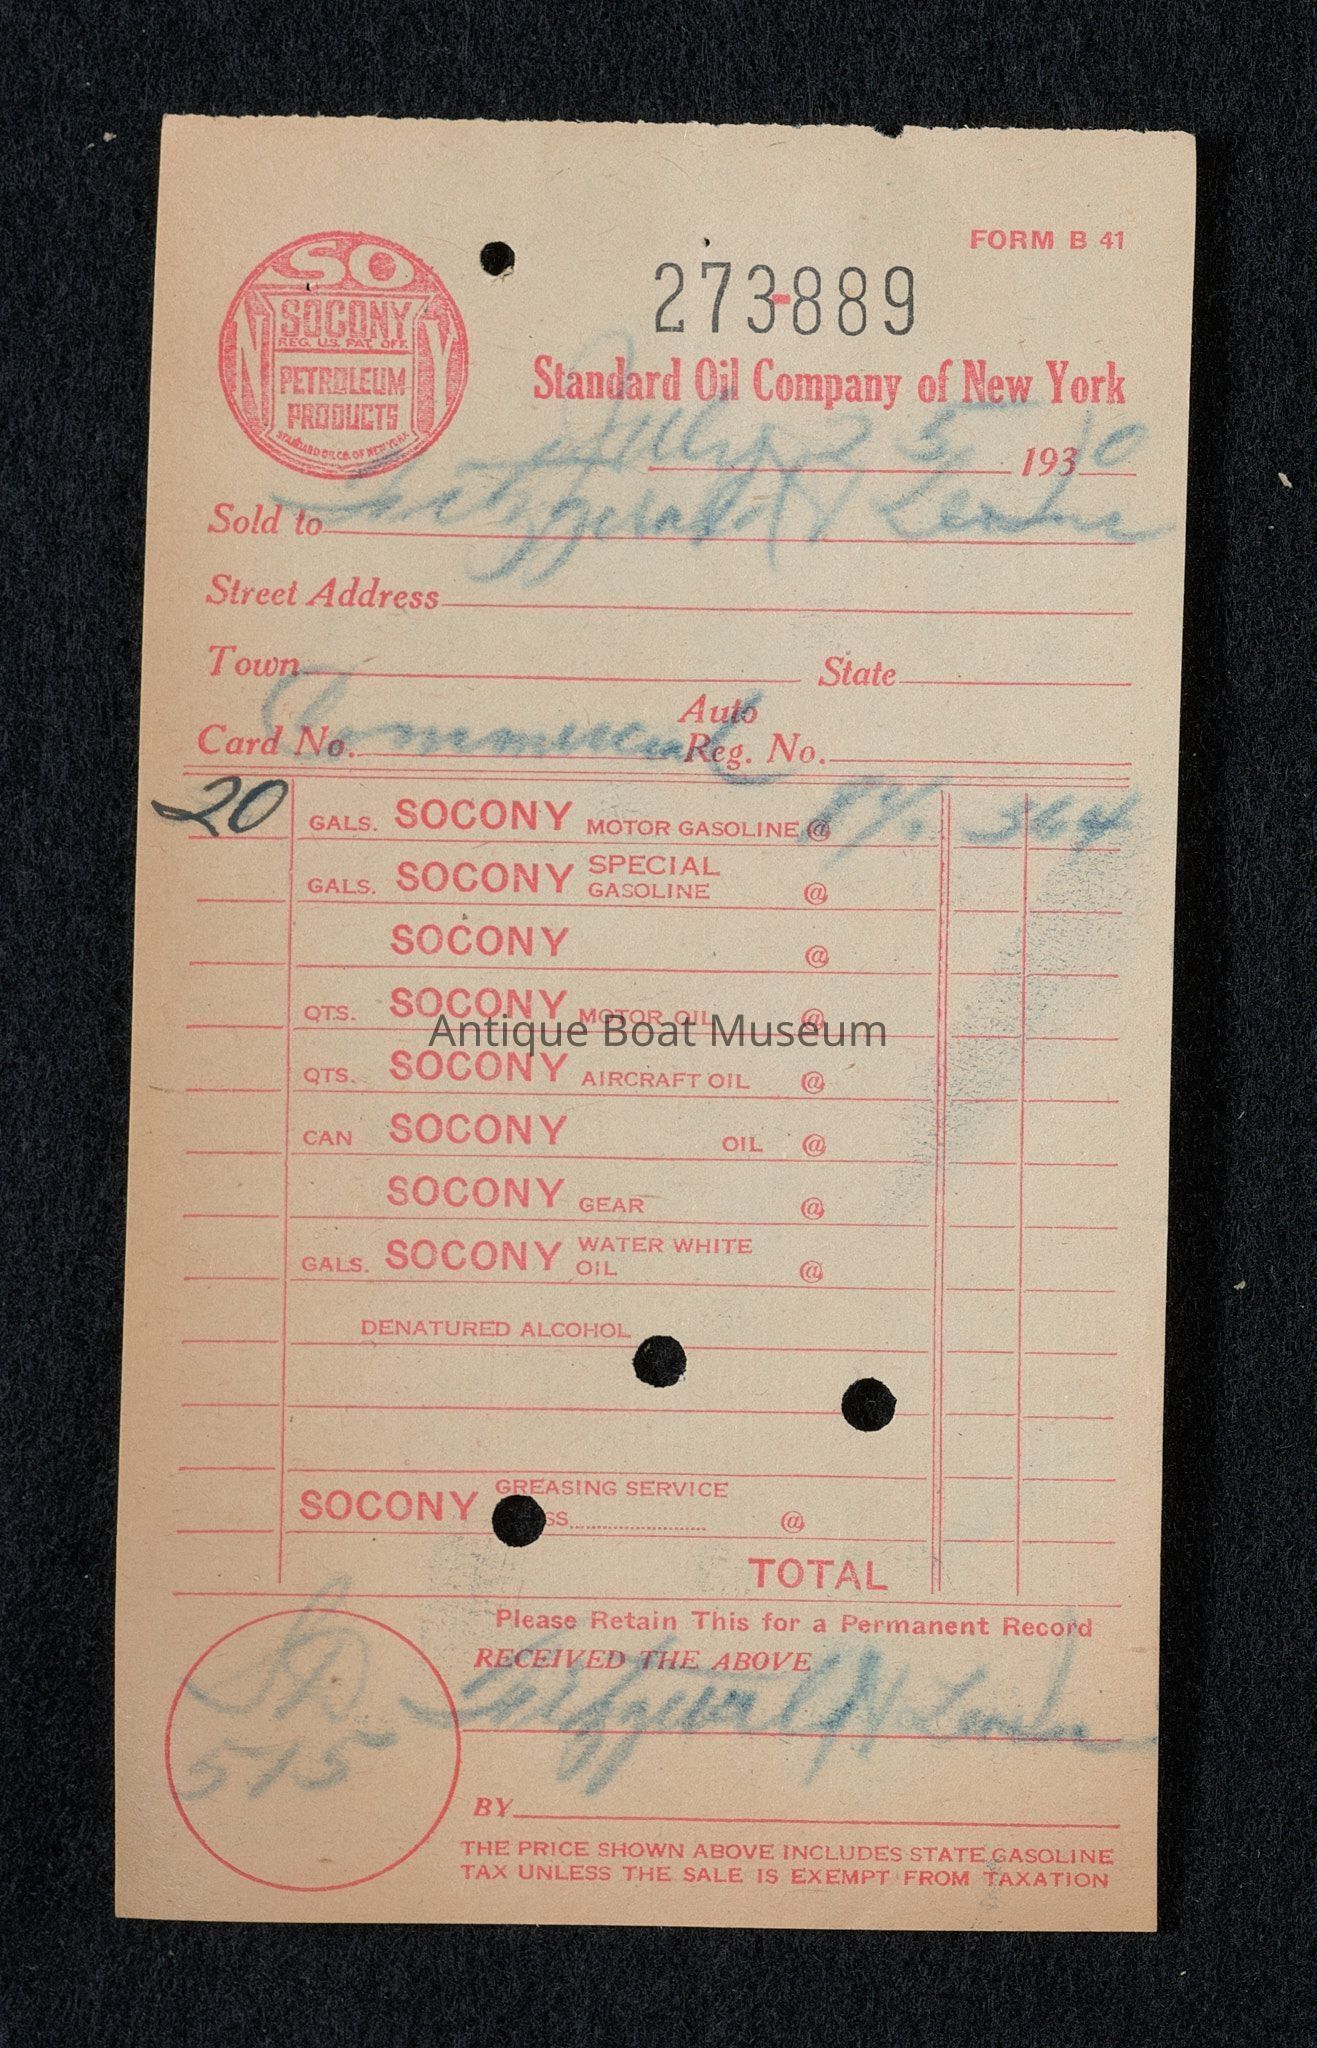 FORM B 41
SO
NY
SOCONY
REG. U.S. PAT. OFF.
PETROLEUM
PRODUCTS
STANDARD OIL CO. OF NEW YORK
273-889
Standard Oil Company of New York
July 25 1930
Sold to Fitzgerald H
Street Address
Town State
Commercial
Auto
Card No. Reg. No.
20 GALS. SOCONY MOTOR GASOLINE @ 364
GALS. SOCONY SPECIAL GASOLINE @
SOCONY @
QTS. SOCONY MOTOR OIL @
Antique Boat Museum
QTS. SOCONY AIRCRAFT OIL @
CAN SOCONY OIL @
SOCONY GEAR @
GALS. SOCONY WATER WHITE OIL @
DENATURED ALCOHOL
SOCONY GREASING SERVICE
SS @
TOTAL
Please Retain This for a Permanent Record
RECEIVED THE ABOVE
Fitzgerald H
515
BY
THE PRICE SHOWN ABOVE INCLUDES STATE GASOLINE
TAX UNLESS THE SALE IS EXEMPT FROM TAXATION